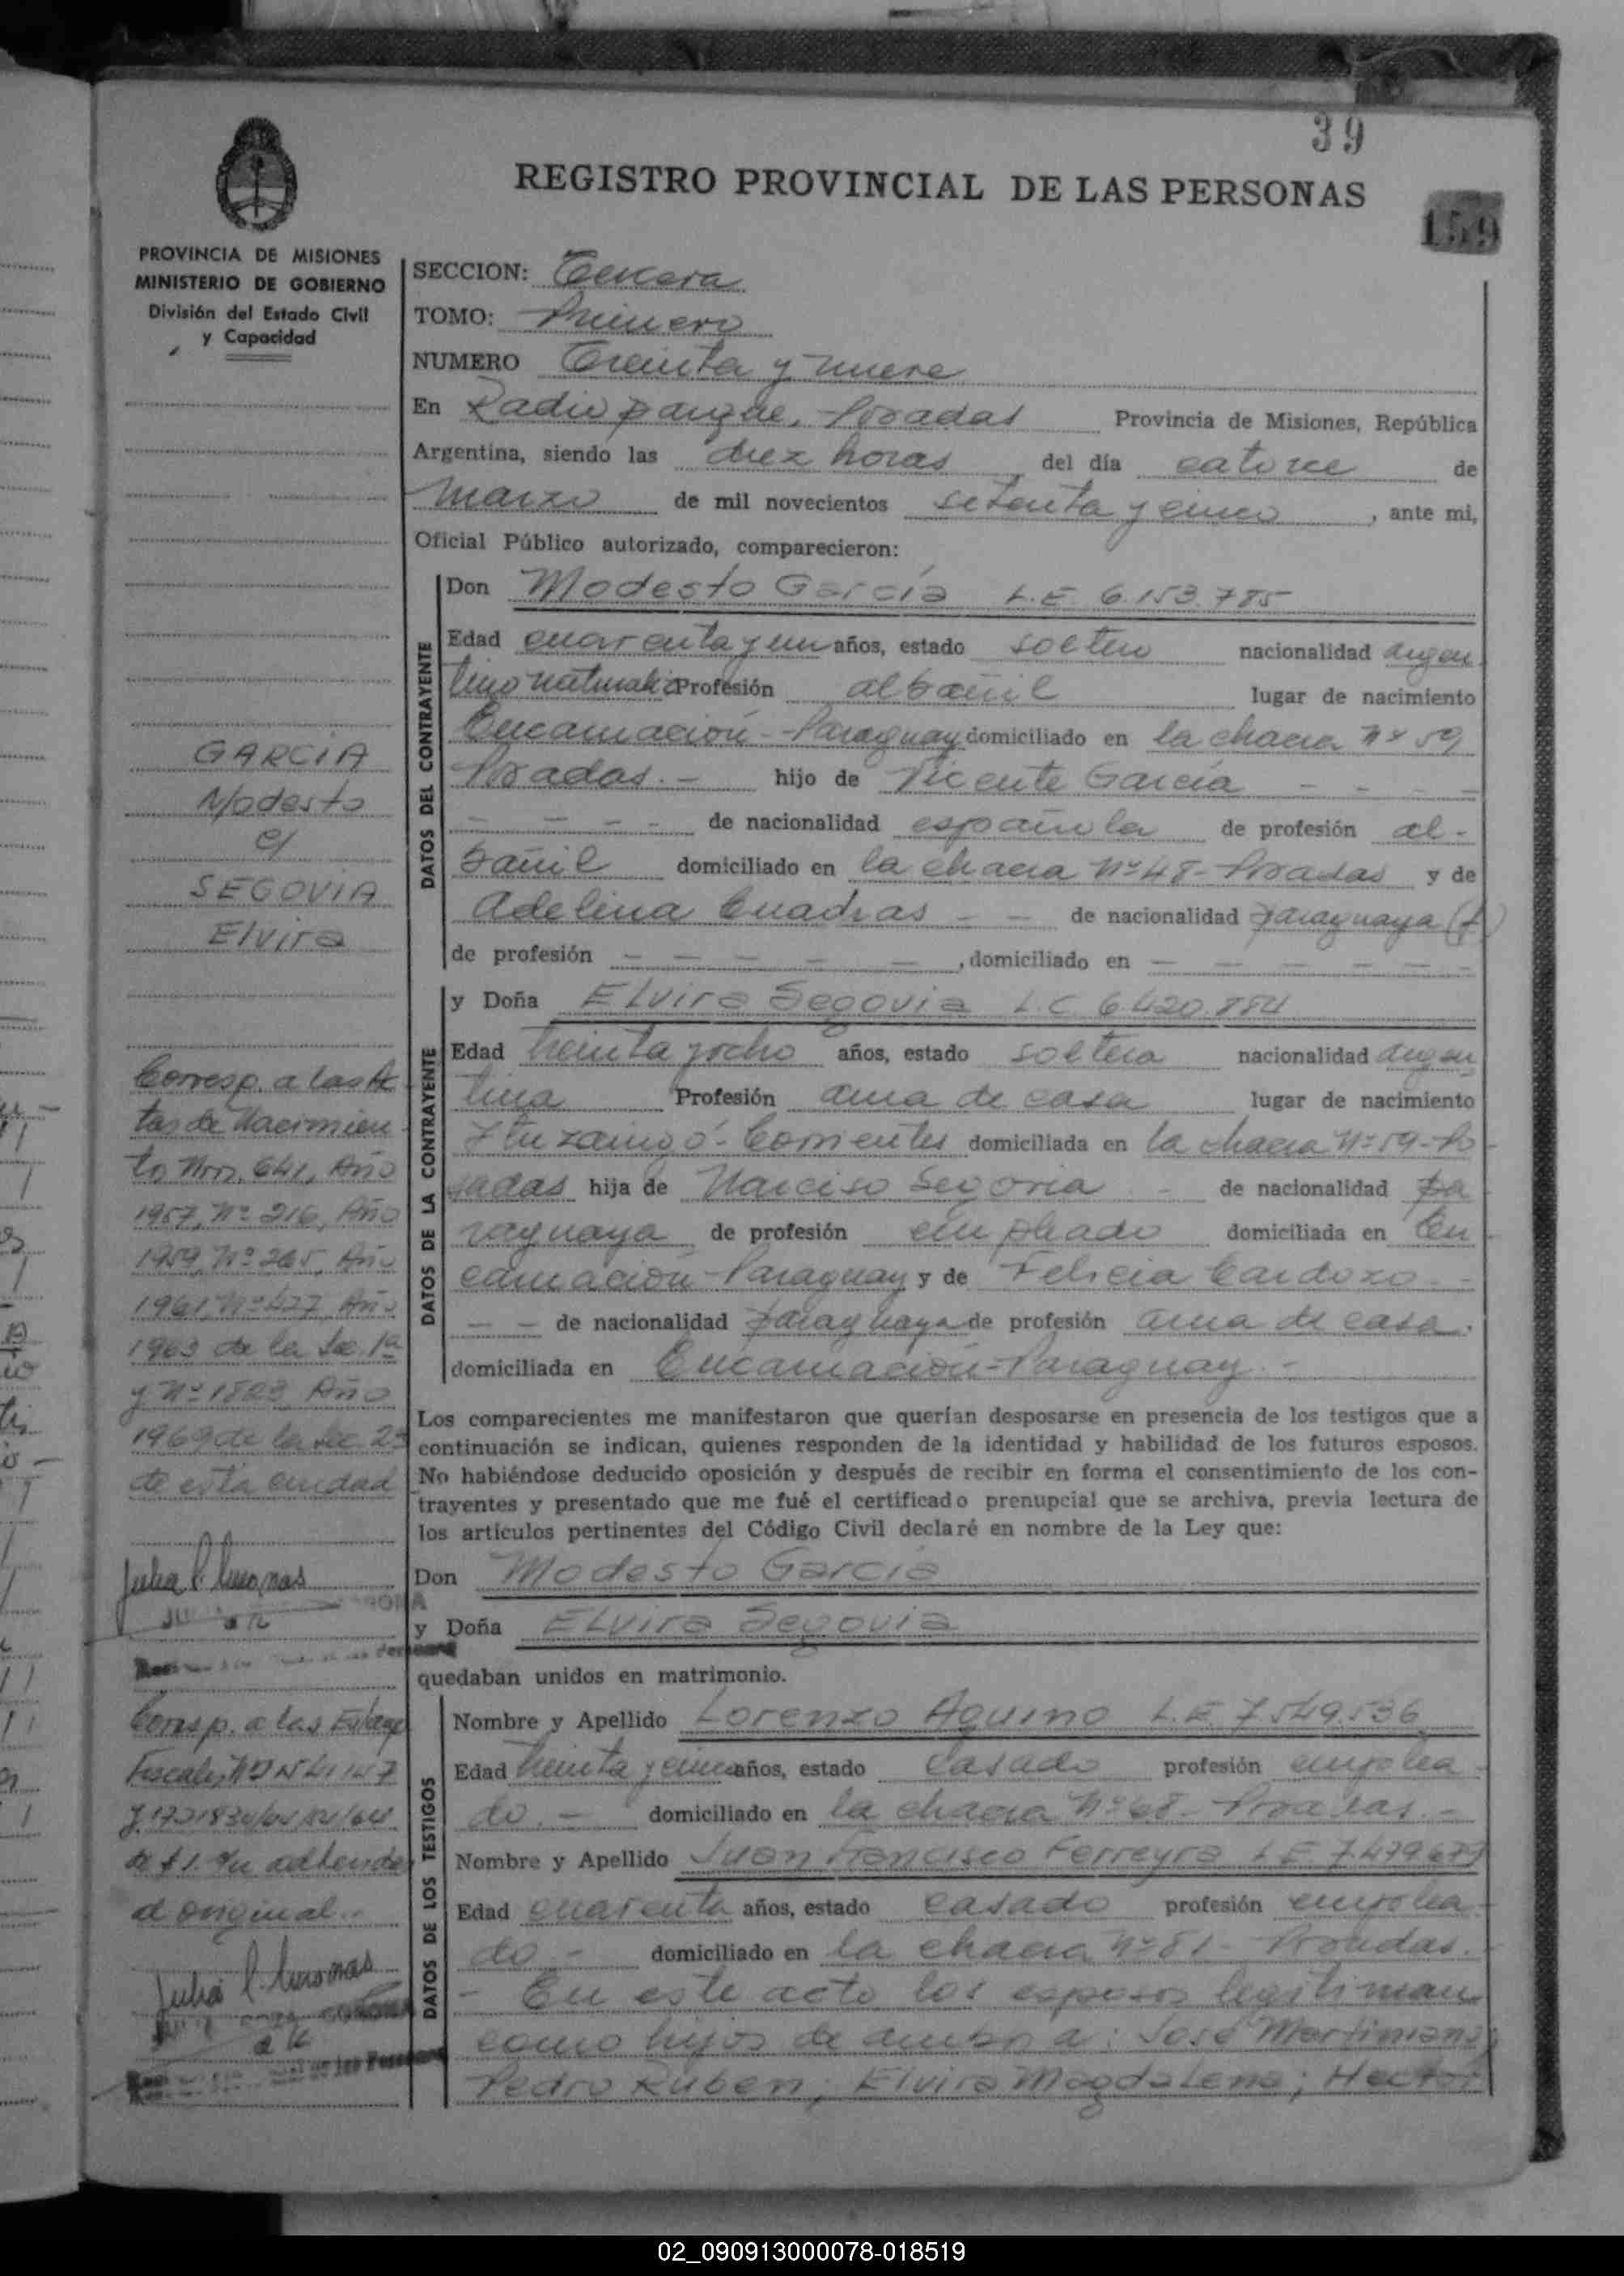 39
REGISTRO PROVINCIAL DE LAS PERSONAS
159
PROVINCIA DE MISIONES
MINISTERIO DE GOBIERNO
División del Estado Civil
y Capacidad
SECCION: Tercera
TOMO: Primero
NUMERO Treinta y nueve
En Radio parque, Posadas Provincia de Misiones, República
Argentina, siendo las diez horas del día catorce de
marzo de mil novecientos setenta y cinco, ante mi,
Oficial Público autorizado, comparecieron:
DATOS DEL CONTRAYENTE
Don Modesto García L.E. 6.153.785
Edad cuarenta y un años, estado soltero nacionalidad argen
tino naturaliz Profesión albañil lugar de nacimiento
Encarnación - Paraguay domiciliado en la chacra Nº 59
Posadas. - hijo de Vicente García - - - -
- - - - de nacionalidad española de profesión al-
bañil domiciliado en la chacra Nº 48 - Posadas y de
Adelina Cuadras - - de nacionalidad paraguaya (f)
de profesión - - - - -, domiciliado en - - - - - -
DATOS DE LA CONTRAYENTE
y Doña Elvira Segovia L.C. 6.420.884
Edad treinta y ocho años, estado soltera nacionalidad argen
tina Profesión ama de casa lugar de nacimiento
Ituzaingó - Corrientes domiciliada en la chacra Nº 59 - Po
sadas hija de Narciso Segovia - de nacionalidad pa
raguaya de profesión empleado domiciliada en En
carnación - Paraguay y de Felicia Cardozo -
- - de nacionalidad paraguaya de profesión ama de casa.
domiciliada en Encarnación - Paraguay. -
Los comparecientes me manifestaron que querían desposarse en presencia de los testigos que a
continuación se indican, quienes responden de la identidad y habilidad de los futuros esposos.
No habiéndose deducido oposición y después de recibir en forma el consentimiento de los con-
trayentes y presentado que me fué el certificado prenupcial que se archiva, previa lectura de
los artículos pertinentes del Código Civil declaré en nombre de la Ley que:
Don Modesto García
y Doña Elvira Segovia
quedaban unidos en matrimonio.
DATOS DE LOS TESTIGOS
Nombre y Apellido Lorenzo Aquino L.E. 7.549.536
Edad treinta y cinco años, estado casado profesión emplea
do. - domiciliado en la chacra Nº 68 - Posadas. -
Nombre y Apellido Juan Francisco Ferreyra L.E. 7.479.679
Edad cuarenta años, estado casado profesión emplea
do - domiciliado en la chacra Nº 81 - Posadas.
- En este acto los esposos legitiman
como hijos de ambos a: José Martiniano;
Pedro Ruben; Elvira Magdalena; Hector
GARCIA
Modesto
c/
SEGOVIA
Elvira
Corresp. a las Ac
tas de Nacimien
to Nro. 641, Año
1957, Nº 216, Año
1959, Nº 265, Año
1961, Nº 427 Año
1963 de la Sec. 1ª
y Nº 1823 Año
1969 de la Sec 2ª
de esta ciudad
Julia
Corresp. a las Estamp
Fiscales
de $1. c/u adheridas
al original. -
Julia
02_090913000078-018519